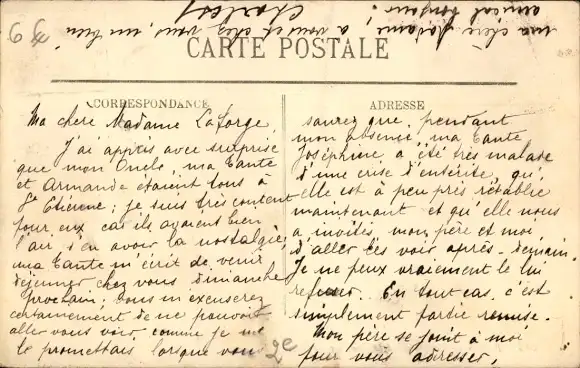 CARTE POSTALE
CORRESPONDANCE
Ma chere Madame Laforge
J'ai appris avec surprise
que mon Oncle, ma Tante
et Armande étaient tous à
St Etienne; je suis très content
pour eux car ils avaient bien
l'air d'en avoir la nostalgie,
ma Tante m'écrit de venir
déjeuner chez vous dimanche
prochain; vous m'excuserez
certainement de ne pouvoir
aller vous voir comme je me
le promettais lorsque vous
2e
ADRESSE
saurez que, pendant
mon absence, ma tante
Joséphine, a été très malade
d'une crise d'entérite, qu'
elle est à peu près rétablie
maintenant et qu'elle nous
a invités, mon père et moi
d'aller les voir après-demain.
Je ne peux vraiment le lui
refuser. En tout cas, c'est
simplement partie remise.
Mon père se joint à moi
pour vous adresser,
ma chère Madame, à vous et chez vous, un bien
amical bonjour!
Charles